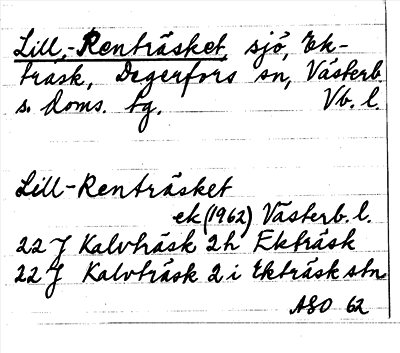 Lill-Renträsket, sjö, Ek-
träsk, Degerfors sn, Västerb.
s. doms. tg. Vb. l.
Lill-Renträsket
ek (1962) Västerb. l.
22 J Kalvträsk 2 h Ekträsk
22 J Kalvträsk 2 i Ekträsk stn
ASO 62